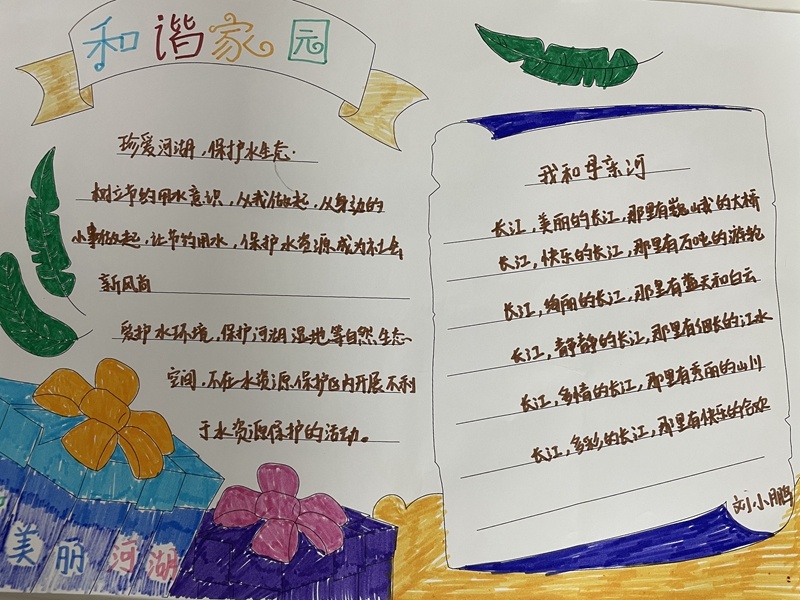 和谐家园
珍爱河湖，保护水生态．
树立节约用水意识，从我做起，从身边的
小事做起，让节约用水，保护水资源成为社会
新风尚
爱护水环境，保护河湖湿地等自然生态
空间，不在水资源保护区内开展不利
于水资源保护的活动。
美丽河湖
我和母亲河
长江，美丽的长江，那里有巍峨的大桥
长江，快乐的长江，那里有万吨的游轮
长江，绚丽的长江，那里有蓝天和白云
长江，静静的长江，那里有细长的江水
长江，多情的长江，那里有秀丽的山川
长江，多彩的长江，那里有快乐的合欢
刘小鹏